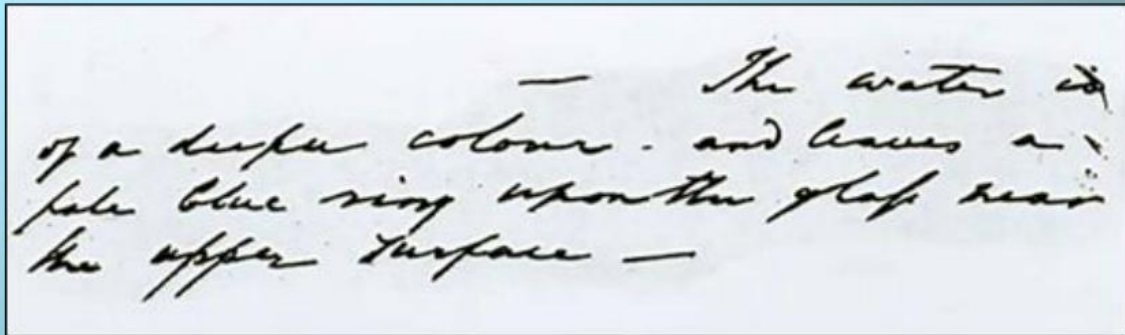 — The water is
of a deeper colour. and leaves a
pale blue ring upon the glass near
the upper surface —